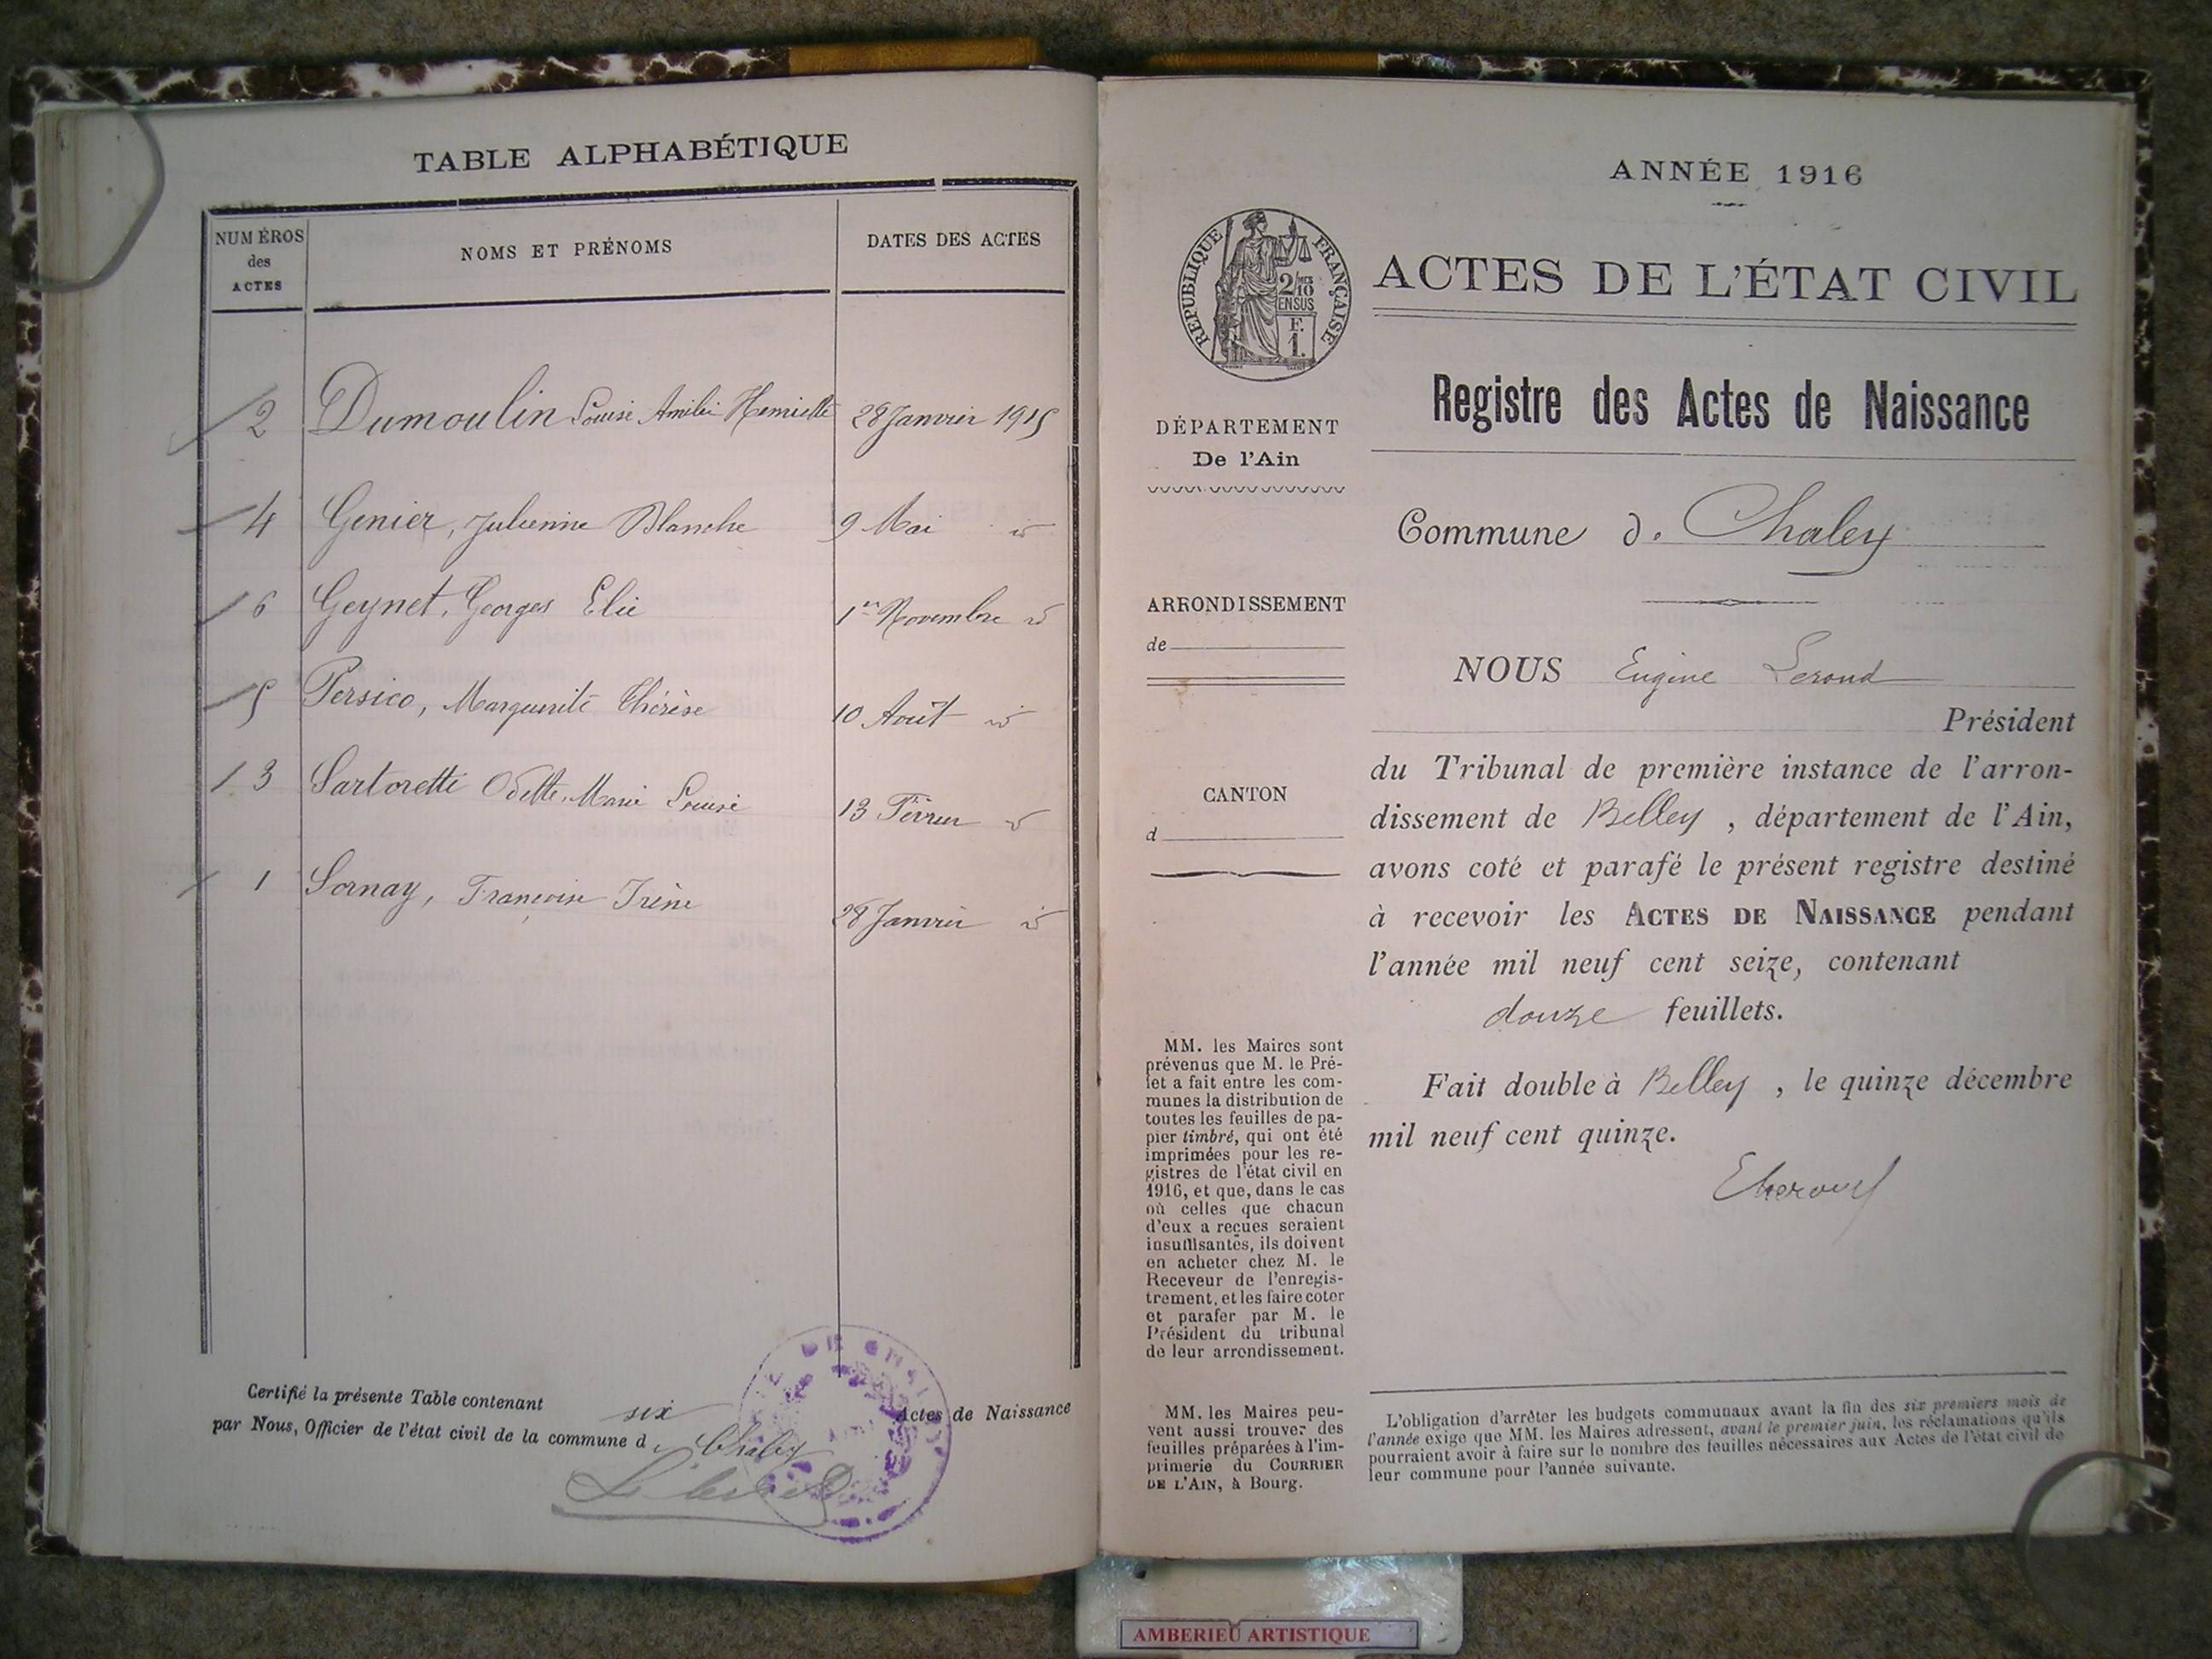 TABLE ALPHABÉTIQUE
NUMÉROS
des
ACTES
NOMS ET PRÉNOMS
DATES DES ACTES
2 Dumoulin Louise Amélie Henriette 28 Janvier 1915
4 Genier, Julienne Blanche 9 Mai id
6 Geynet, Georges Elie 1er Novembre id
5 Persico, Marguerite Thérèse 10 Août id
3 Sartoretti Odette Marie Louise 13 Février id
1 Sornay, Françoise Irène 28 Janvier id
Certifié la présente Table contenant six Actes de Naissance
par Nous, Officier de l'état civil de la commune d. Chaley
ANNÉE 1916
RÉPUBLIQUE FRANÇAISE
2/10
EN SUS
F.
1.
ACTES DE L'ÉTAT CIVIL
Registre des Actes de Naissance
DÉPARTEMENT
De l'Ain
Commune d. Chaley
ARRONDISSEMENT
de
CANTON
d
NOUS Eugène Lerond
Président
du Tribunal de première instance de l'arron-
dissement de Belley, département de l'Ain,
avons coté et parafé le présent registre destiné
à recevoir les ACTES DE NAISSANCE pendant
l'année mil neuf cent seize, contenant
douze feuillets.
Fait double à Belley, le quinze décembre
mil neuf cent quinze.
MM. les Maires sont
prévenus que M. le Pré-
fet a fait entre les com-
munes la distribution de
toutes les feuilles de pa-
pier timbré, qui ont été
imprimées pour les re-
gistres de l'état civil en
1916, et que, dans le cas
où celles que chacun
d'eux a reçues seraient
insuffisantes, ils doivent
en acheter chez M. le
Receveur de l'enregis-
trement, et les faire coter
et parafer par M. le
Président du tribunal
de leur arrondissement.
MM. les Maires peu-
vent aussi trouver des
feuilles préparées à l'im-
primerie du COURRIER
DE L'AIN, à Bourg.
L'obligation d'arrêter les budgets communaux avant la fin des six premiers mois de
l'année exige que MM. les Maires adressent, avant le premier juin, les réclamations qu'ils
pourraient avoir à faire sur le nombre des feuilles nécessaires aux Actes de l'état civil de
leur commune pour l'année suivante.
AMBERIEU ARTISTIQUE